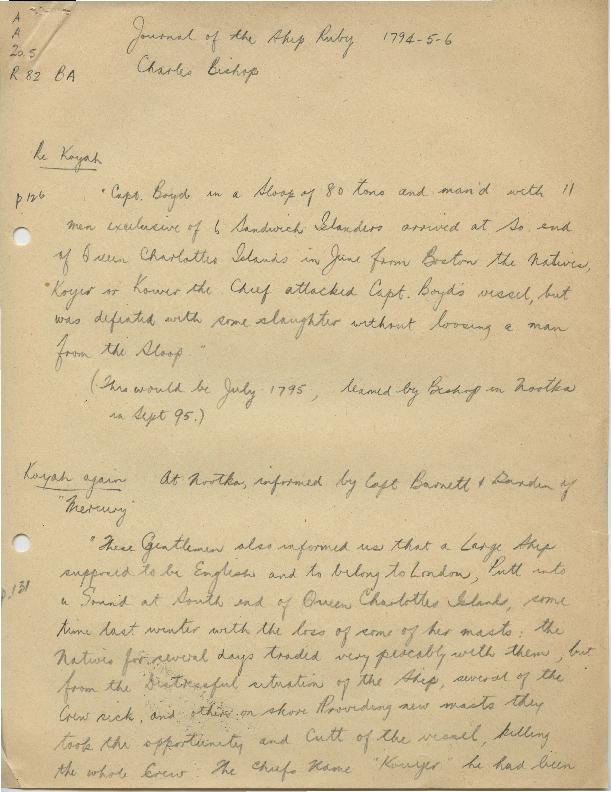 A
A
20.5
R 82 BA
Journal of the Ship Ruby 1794-5-6
Charles Bishop
Re Koyah
p 126
"Capt. Boyd in a Sloop of 80 tons and man'd with 11
men exclusive of 6 Sandwich Islanders arrived at So. end
of Queen Charlottes Islands in June from Boston the Natives,
Koyer or Kower the Chief attacked Capt. Boyd's vessel, but
was defeated with some slaughter without loosing a man
from the Sloop."
(This would be July 1795, learned by Bishop in Nootka
in Sept 95.)
Koyah again At Nootka, informed by Capt Barnett & of
"Mercury"
p. 131
"These Gentlemen also informed us that a Large Ship
supposed to be English and to belong to London, Putt into
a Sound at South end of Queen Charlottes Islands, some
time last winter with the loss of some of her masts: the
Natives for several days traded very peacably with them, but
from the Distressful situation of the Ship, several of the
Crew sick, and others on shore Providing new masts they
took the opportunity and Cutt of the vessel, killing
the whole Crew. The Chiefs Name "Kouyer" he had been